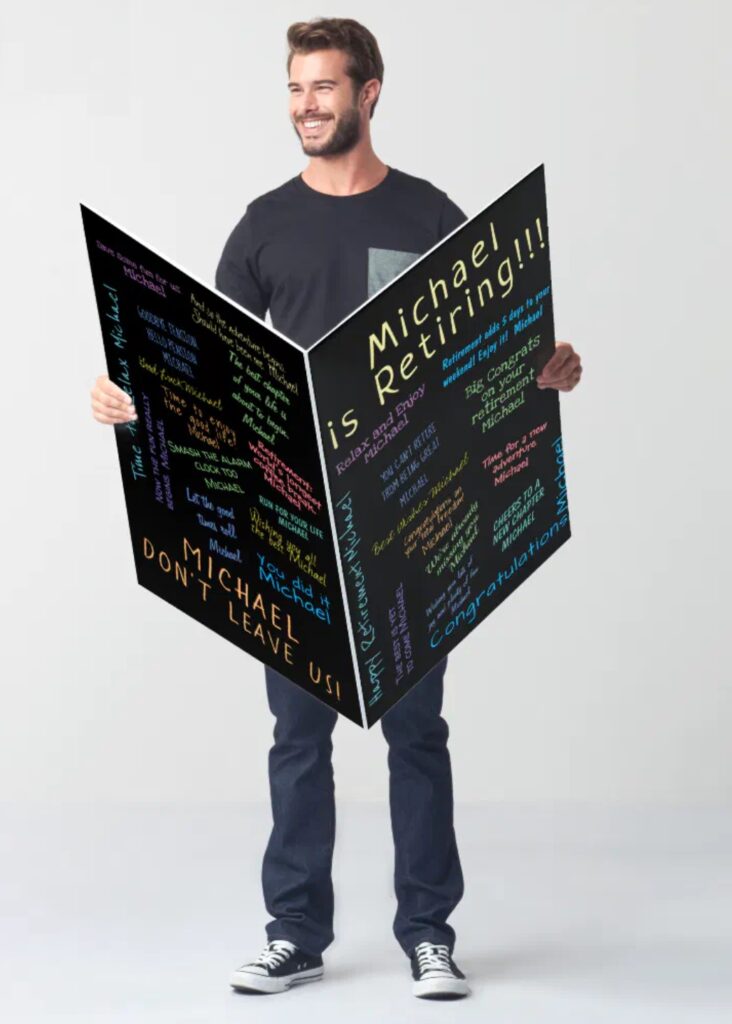 Save some fun for us
Michael
Time to Relax Michael
And so the adventure begins
Should have been me Michael
GOODBYE TENSION
HELLO PENSION
MICHAEL
The best chapter
of your life is
about to begin
Michael
Good Luck Michael
Time to enjoy
the good life!
Michael
NOW THE FUN REALLY
BEGINS MICHAEL
Retirement:
World's longest
coffee break
Michael
SMASH THE ALARM
CLOCK TOO
MICHAEL
Let the good
times roll
Michael
RUN FOR YOUR LIFE
MICHAEL
Wishing you all
the best Michael
you did it
Michael
MICHAEL
DON'T LEAVE US!
Michael
is Retiring!!!
Retirement adds 5 days to your
weekend! Enjoy it! Michael
Relax and Enjoy
Michael
Big Congrats
on your
retirement
Michael
YOU CAN'T RETIRE
FROM BEING GREAT
MICHAEL
Time for a new
adventure
Michael
Best Wishes Michael
Congratulations on
your total freedom
Michael
Happy Retirement Michael
We're definitely
missing you
Michael
CHEERS TO A
NEW CHAPTER
MICHAEL
THE BEST IS YET
TO COME MICHAEL
Michael
Congratulations Michael